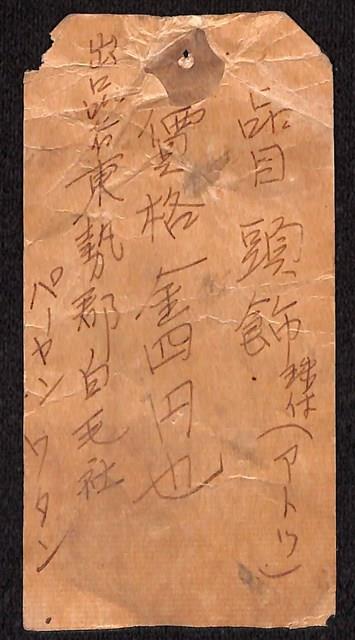 品目 頭飾 珠付(アトウ)
價格 金四円也
出品者 東勢郡白毛社
パーヤン ワタン